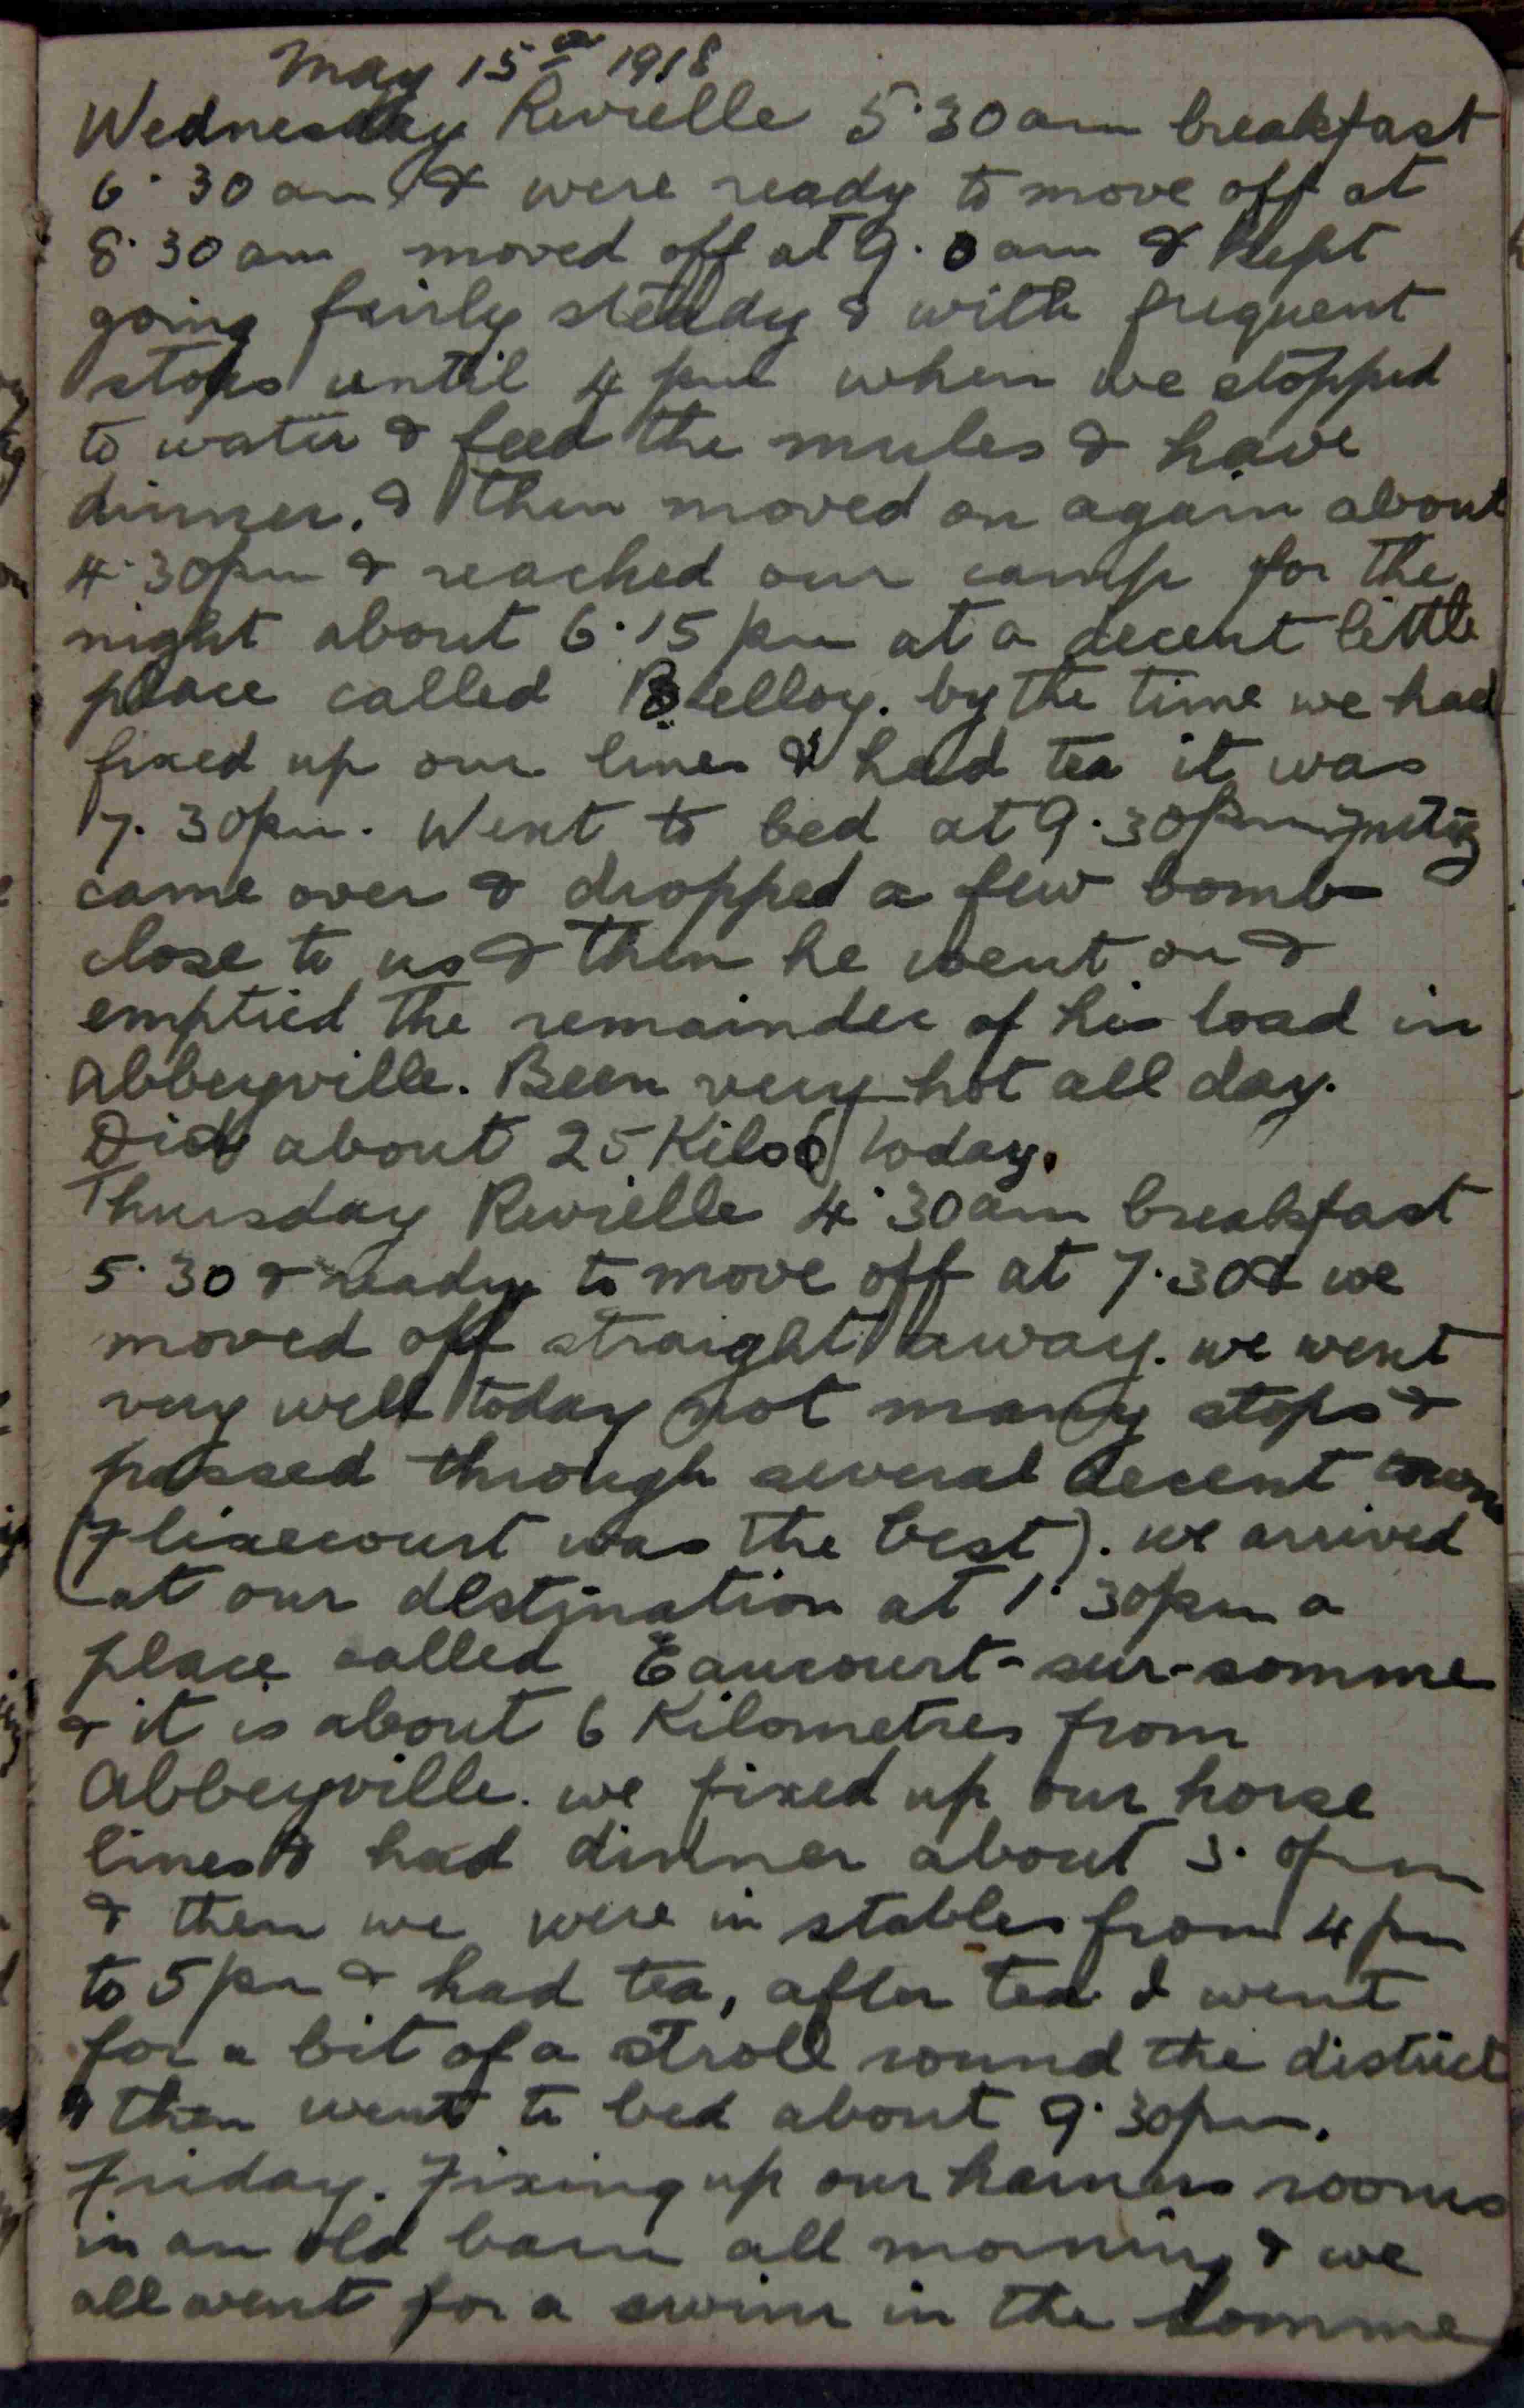 May 15th 1918
Wednesday Revielle 5.30am breakfast
6.30am & were ready to move off at
8.30am moved off at 9.0am & kept
going fairly steady & with frequent
stops until 4pm when we stopped
to water & feed the mules & have
dinner. & then moved on again about
4.30pm & reached our camp for the
night about 6.15pm at a decent little
place called Belloy. by the time we had
fixed up our lines & had tea it was
7.30pm. Went to bed at 9.30pm
came over & dropped a few bombs
close to us & then he went on &
emptied the remainder of his load in
Abbeyville. Been very hot all day.
Did about 25 Kilos today.
Thursday Revielle 4.30am breakfast
5.30 & ready to move off at 7.30 & we
moved off straight away. we went
very well today not many stops &
passed through several decent towns
(Flixecourt was the best). we arrived
at our destination at 1.30pm a
place called Eaucourt-sur-somme
& it is about 6 Kilometres from
Abbeyville. we fixed up our horse
lines & had dinner about 3.0pm
& then we were in stables from 4pm
to 5pm & had tea, after tea I went
for a bit of a stroll round the district
& then went to bed about 9.30pm.
Friday. Fixing up our harness rooms
in an old barn all morning & we
all went for a swim in the Somme